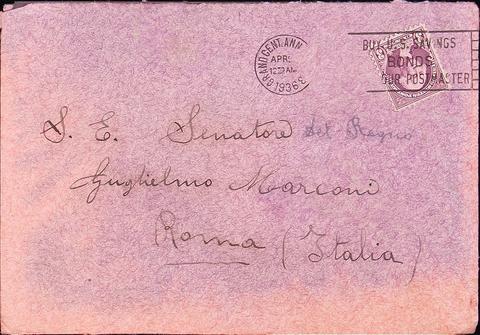 GRAND CENT. ANN
APR
12 30 AM
1936
BUY U.S. SAVINGS
BONDS
YOUR POSTMASTER
S. E. Senatore del Regno
Guglielmo Marconi
Roma (Italia)